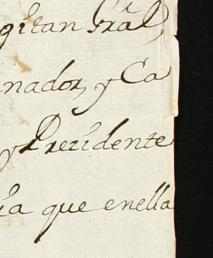 pitan Gral,
nador, y Ca
y Precidente
ia que enella